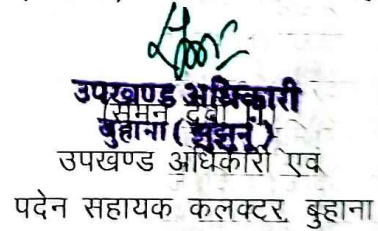 उपखण्ड अधिकारी
(सुमन देवी II)
बुहाना (झुंझुनू)
उपखण्ड अधिकारी एवं
पदेन सहायक कलक्टर, बुहाना